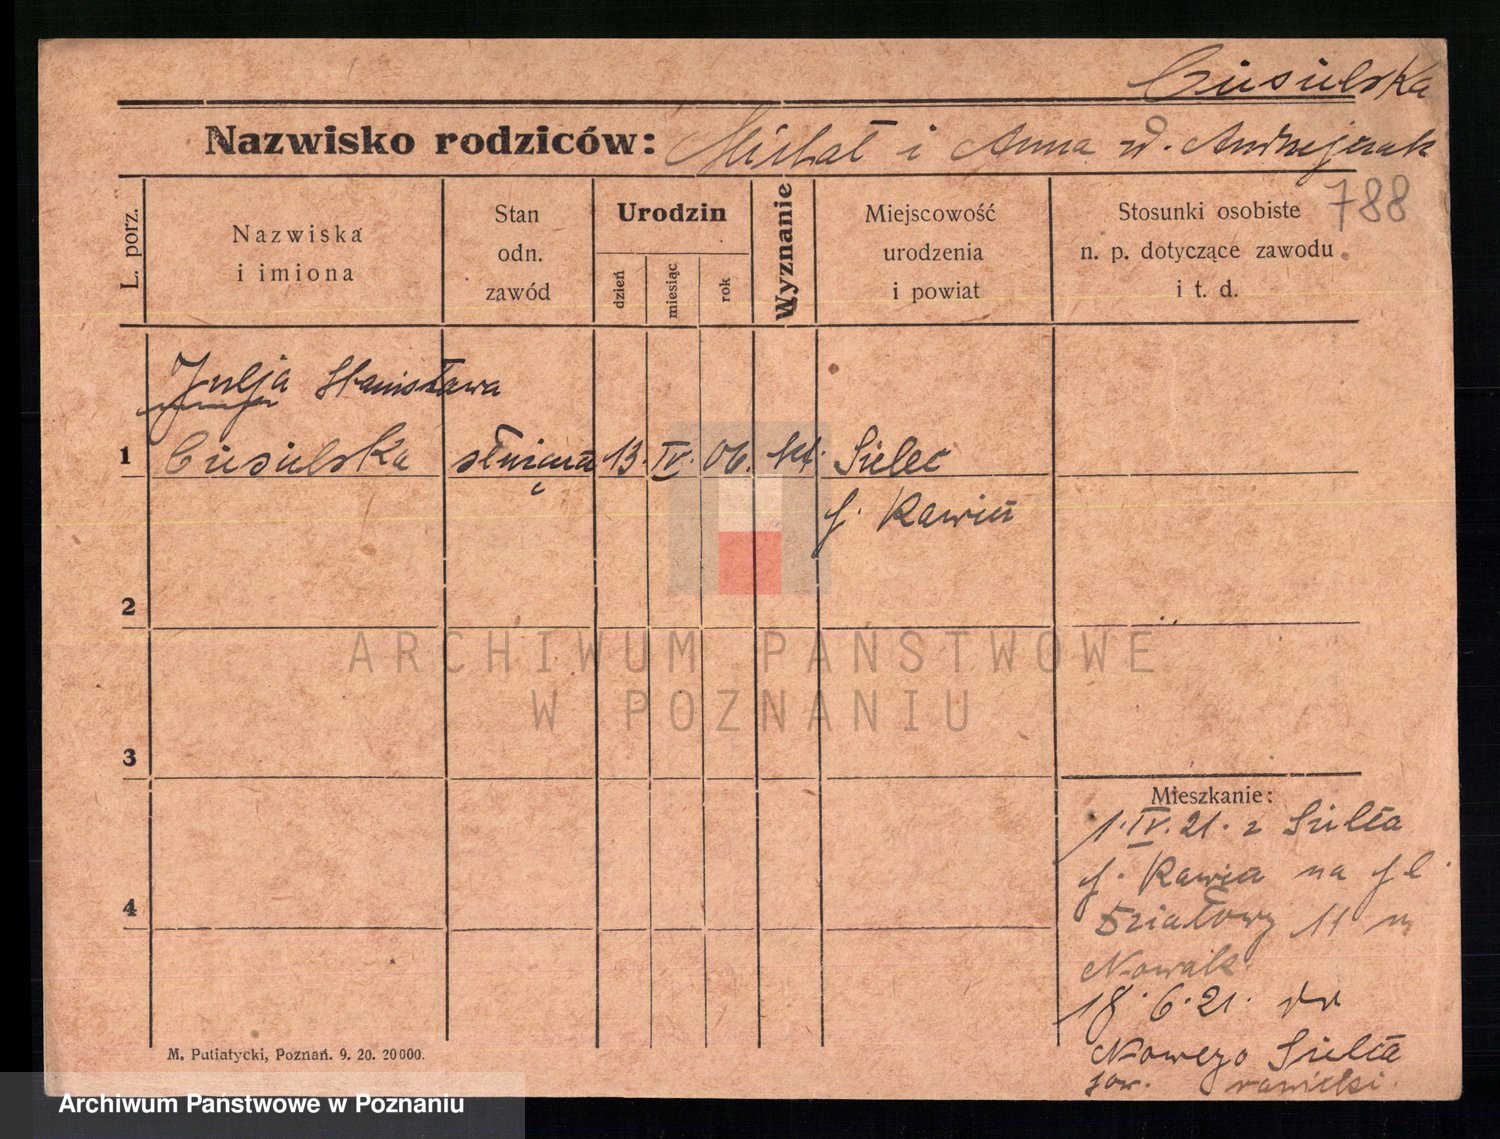 Ciesielska
Nazwisko rodziców: Michał i Anna z d. Andrzejczak
788
L. porz.
Nazwiska
i imiona
Stan
odn.
zawód
Urodzin
dzień
miesiąc
rok
Wyznanie
Miejscowość
urodzenia
i powiat
Stosunki osobiste
n. p. dotyczące zawodu
i t. d.
Julja Stanisława
1 Ciesielska służąca 13. IV. 06. kt. Sielec
p. Rawicz
2
3
4
Mieszkanie:
1. IV. 21. z Sielca
p. Rawicz na pl.
Działowy 11
Nowak
18. 6. 21. do
Nowego Sielca
pow. rawicki.
M. Putiatycki, Poznań. 9. 20. 20000.
ARCHIWUM PAŃSTWOWE
W POZNANIU
Archiwum Państwowe w Poznaniu